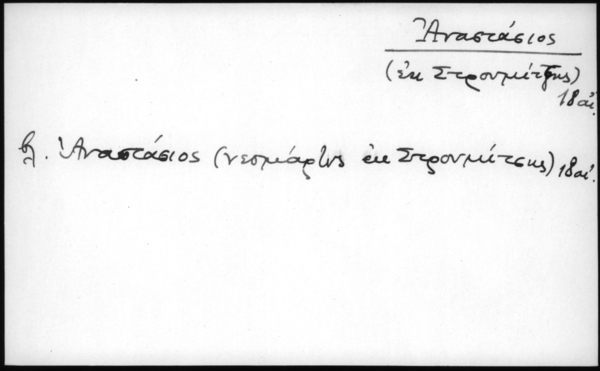 Ἀναστάσιος
(ἐκ Στρουμίτζης)
18 αἰ.
βλ. Ἀναστάσιος (νεομάρτυς ἐκ Στρουμίτσης) 18 αἰ.